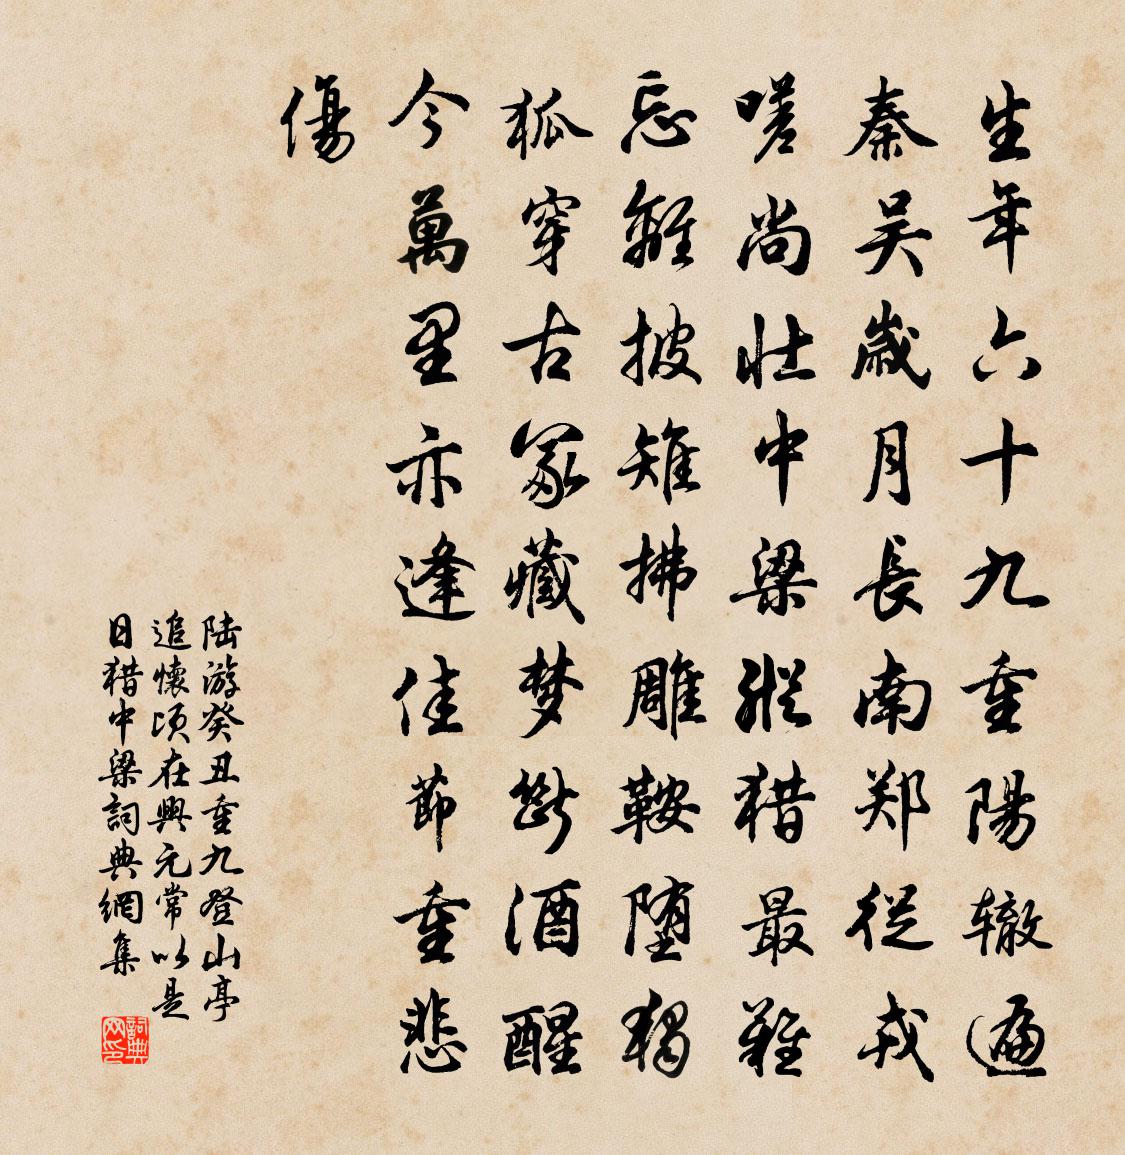 生年六十九重陽辙遍
秦吴歲月長南郑從戎
嗟尚壮中梁縱猎最難
忘離披雉拂雕鞍堕猲
狐穿古冢藏梦斷酒醒
今萬里亦逢佳節重悲
傷
陆游癸丑重九登山亭
追懷顷在興元常以是
日猎中梁詞典網集
詞典
网印